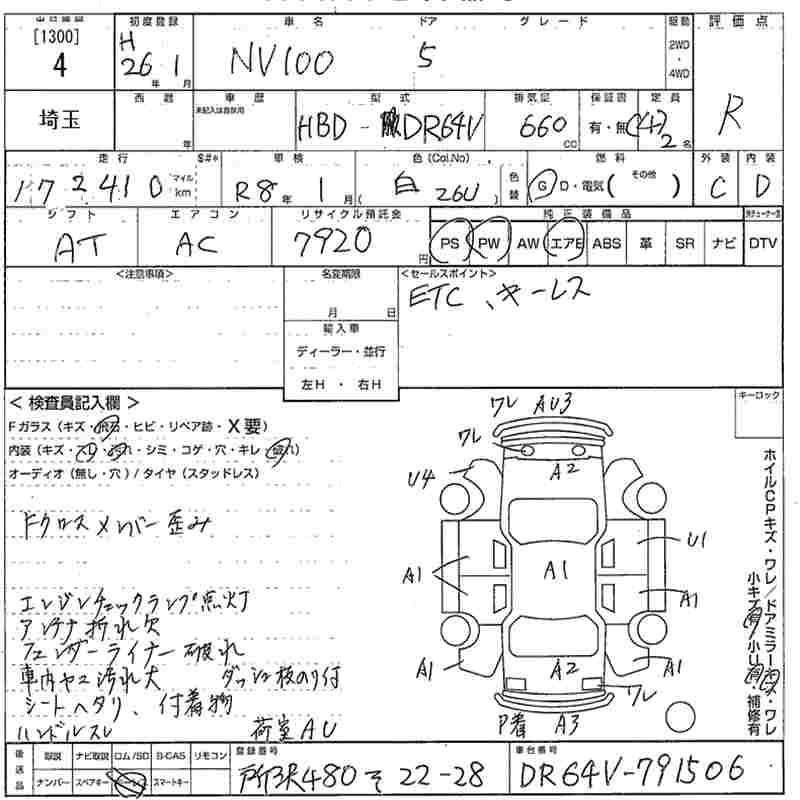 初度登録 車名 ドア グレード 駆動 評価点
[1300] 4 H 26年 1月 NV100 5 2WD・4WD R
埼玉 西暦 年 車歴 未記入は自家用 型式 HBD-DR64V 排気量 660 CC 保証書 有・無 定員 (4)2名
走行 172410 マイル km S#* 車検 R8年 1月 色(Col.No) (白 26U) 色替 燃料 G D・電気( その他 ) 外装 C 内装 D
シフト AT エアコン AC リサイクル預託金 7920円 純正装備品 PS PW AW エアB ABS 革 SR ナビ DTV
<注意事項> 名変期限 月 日 <セールスポイント>
ETC、キーレス
輸入車
ディーラー・並行
左H・右H
<検査員記入欄> キーロック
Fガラス(キズ・飛石・ヒビ・リペア跡・X要)
内装(キズ・スレ・汚れ・シミ・コゲ・穴・キレ・盗れ)
オーディオ(無し・穴)/タイヤ(スタッドレス)
Fクロスメンバー歪み
エンジンチェックランプ点灯
アンテナ折れ欠
フェンダーライナー破れ
車内ヤニ汚れ大 ダッシュ板のり付
シートヘタリ、付着物
ハンドルスレ 荷室AU
ワレ AU3
ワレ
A2
U4
U1
A1
A1
A1
A1
A1
A2
ワレ
P着 A3
ホイルCPキズ・ワレ/ドアミラーキズ・ワレ
小キズ有/小U有・補修有
後送品 取説 ナビ取説 ロム/SD B-CAS リモコン 登録番号 車台番号
ナンバー スペアキー キーレス スマートキー 所沢480そ22-28 DR64V-791506